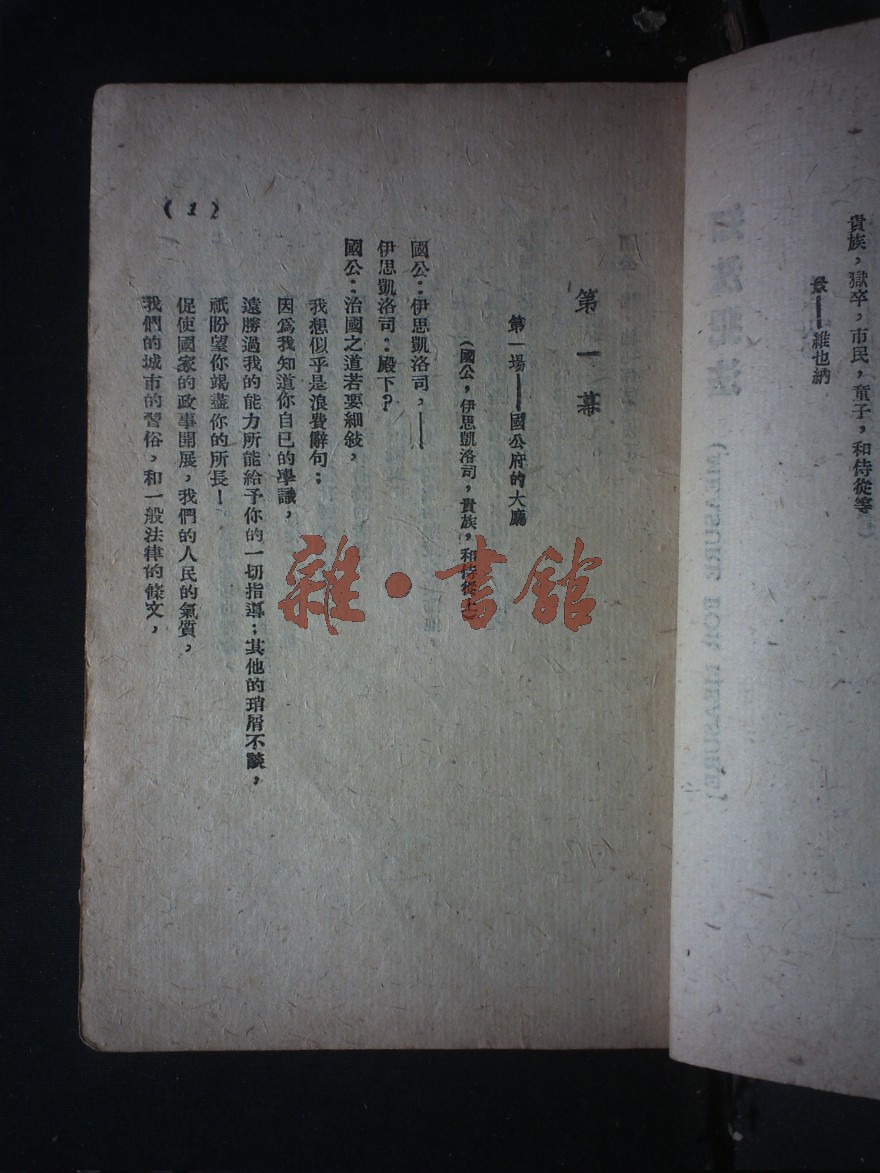 貴族,獄卒,市民,童子,和侍從等
景——維也納
第一幕
第一場——國公府的大廳
(國公,伊思凱洛司,貴族,和侍從上)
國公:伊思凱洛司,——
伊思凱洛司:殿下?
國公:治國之道若要細敍,
我想似乎是浪費辭句;
因爲我知道你自己的學識,
遠勝過我的能力所能給予你的一切指導;其他的瑣屑不談,
祇盼望你竭盡你的所長!
促使國家的政事開展,我們的人民的氣質,
我們的城市的習俗,和一般法律的條文,
(1)
雜·書館
知法犯法
(MEASURE FOR MEASURE)